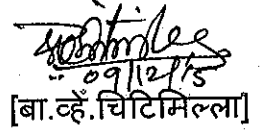 09/12/15
[बा.व्हें.चिटिमिल्ला]